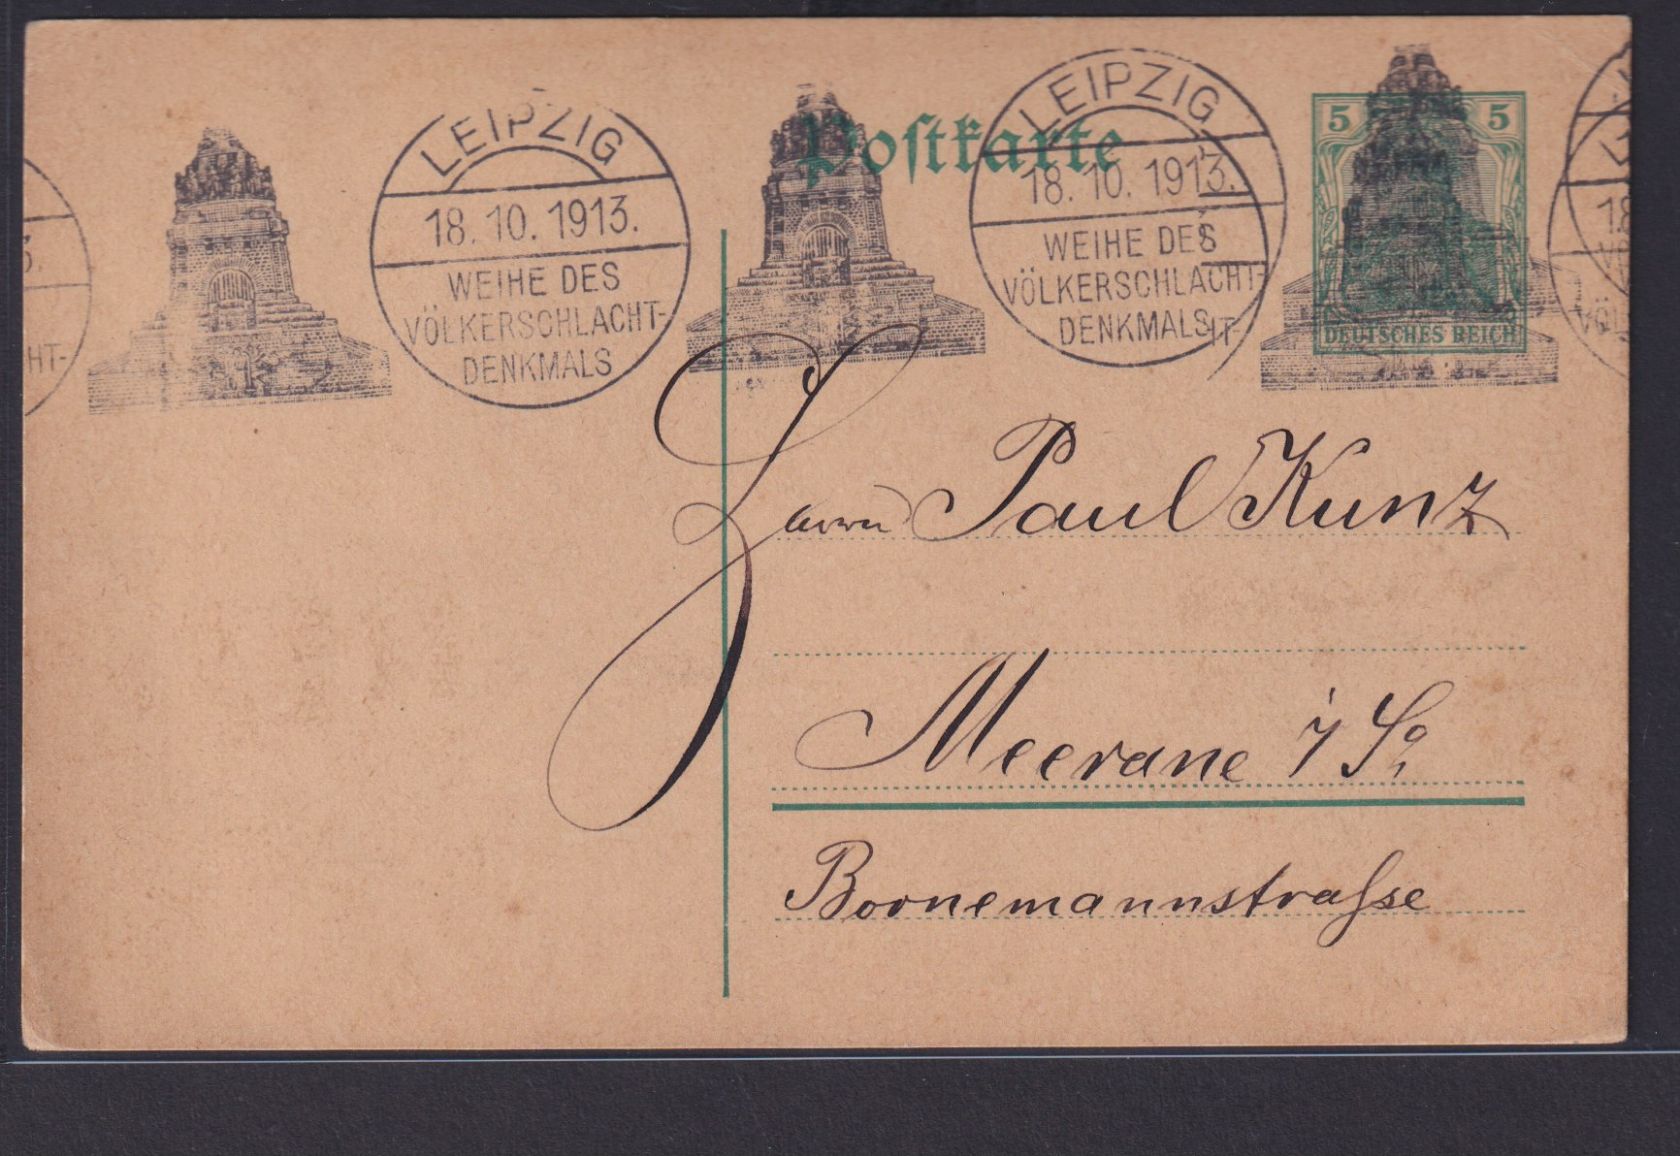 LEIPZIG
18. 10. 1913.
WEIHE DES
VÖLKERSCHLACHT-
DENKMALS
Postkarte
LEIPZIG
18. 10. 1913.
WEIHE DES
VÖLKERSCHLACHT-
DENKMALS
IT-
5 5
DEUTSCHES REICH
3.
HT-
18
VÖL
Herrn Paul Kunz
Meerane i/Sa.
Bornemannstraſse